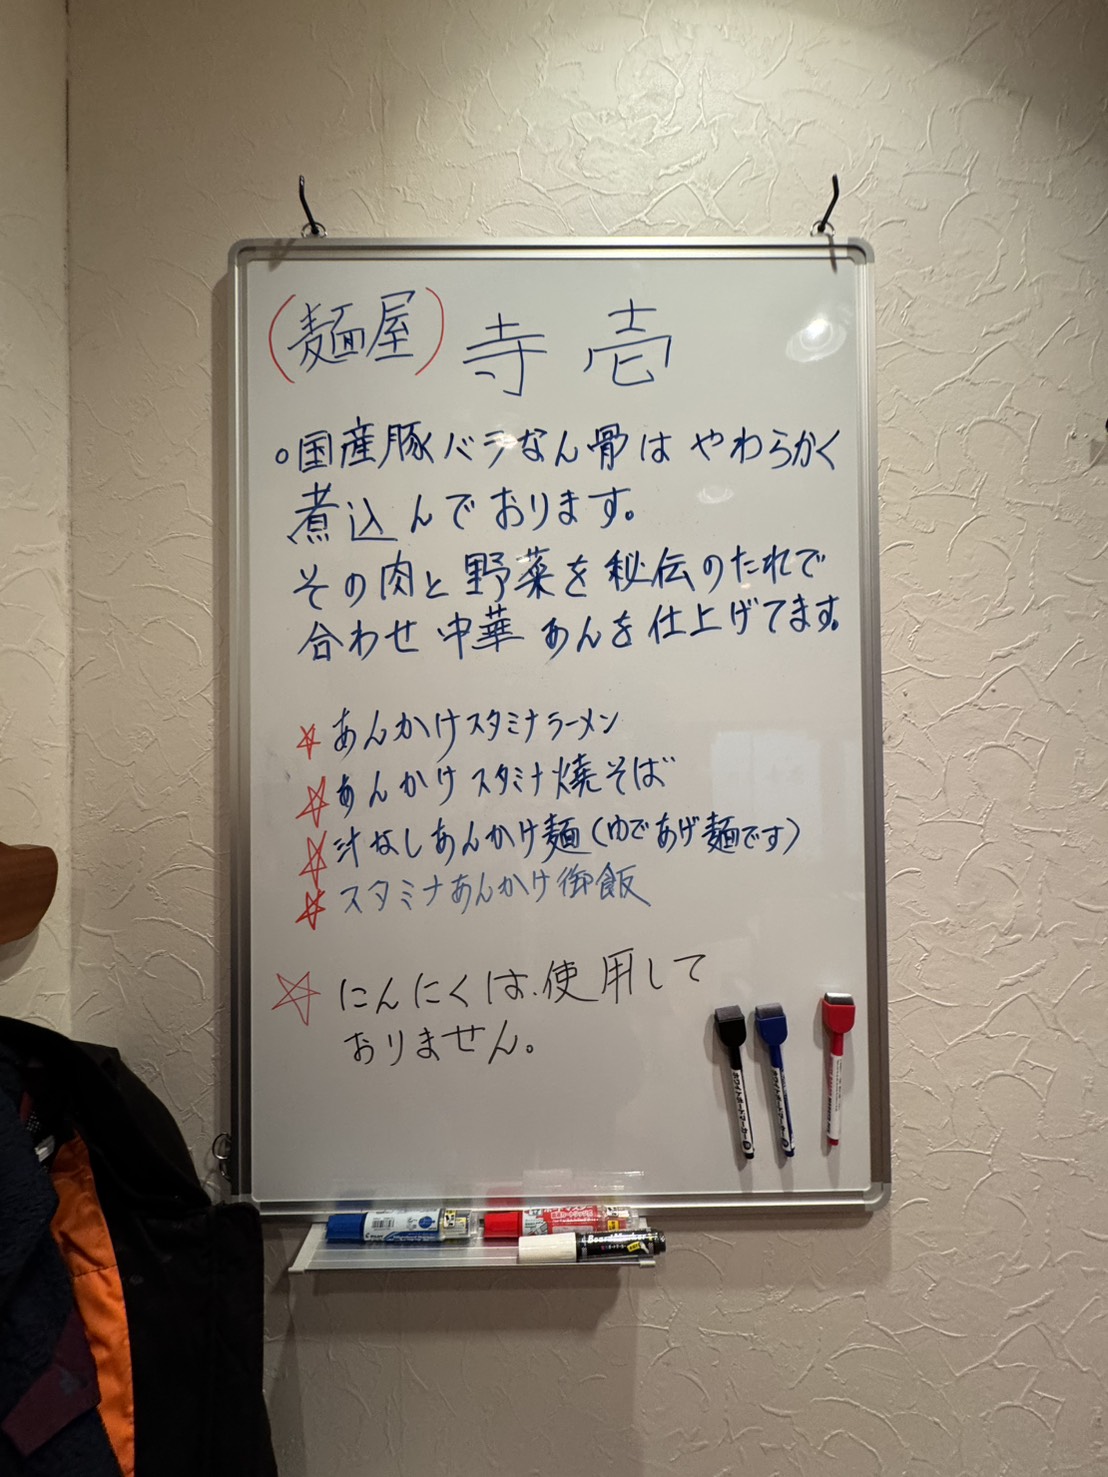 (麺屋) 寺壱
○国産豚バラなん骨は やわらかく
煮込んでおります。
その肉と野菜を秘伝のたれで
合わせ中華あんを仕上げてます。
☆あんかけスタミナラーメン
☆あんかけスタミナ焼そば
☆汁なしあんかけ麺(ゆであげ麺です)
☆スタミナあんかけ御飯
☆にんにくは.使用して
おりません。
ホワイトボードマーカー
ホワイトボードマーカー
BoardMarker